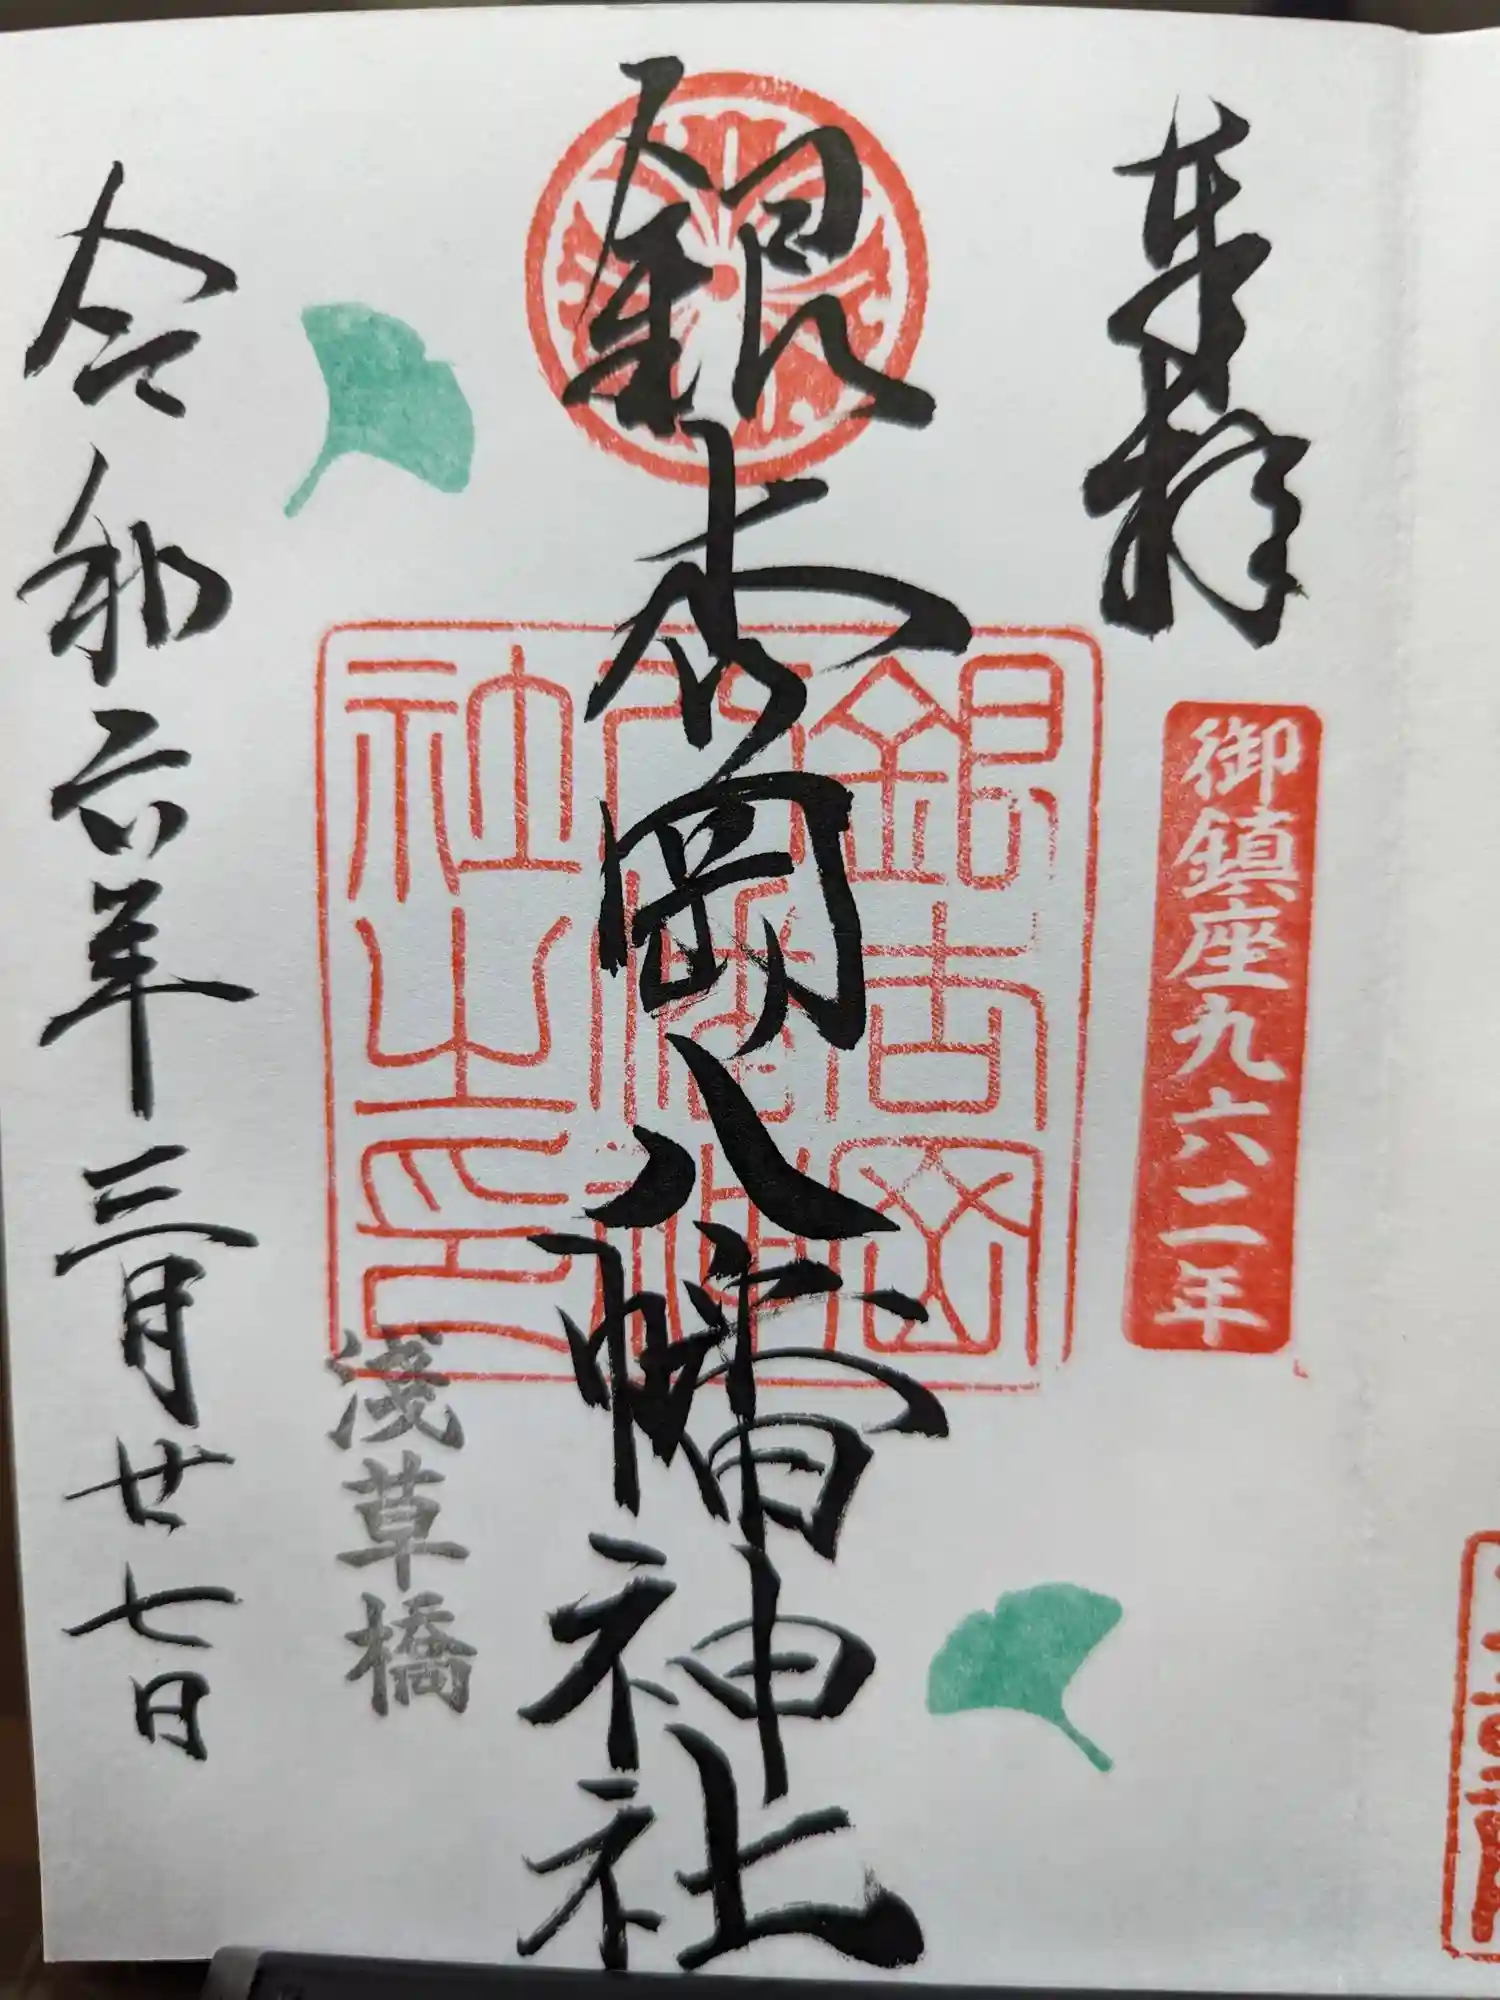 奉拝
御鎮座九六二年
銀杏岡八幡神社
銀杏岡
八幡神
社之印
浅草橋
令和六年三月廿七日